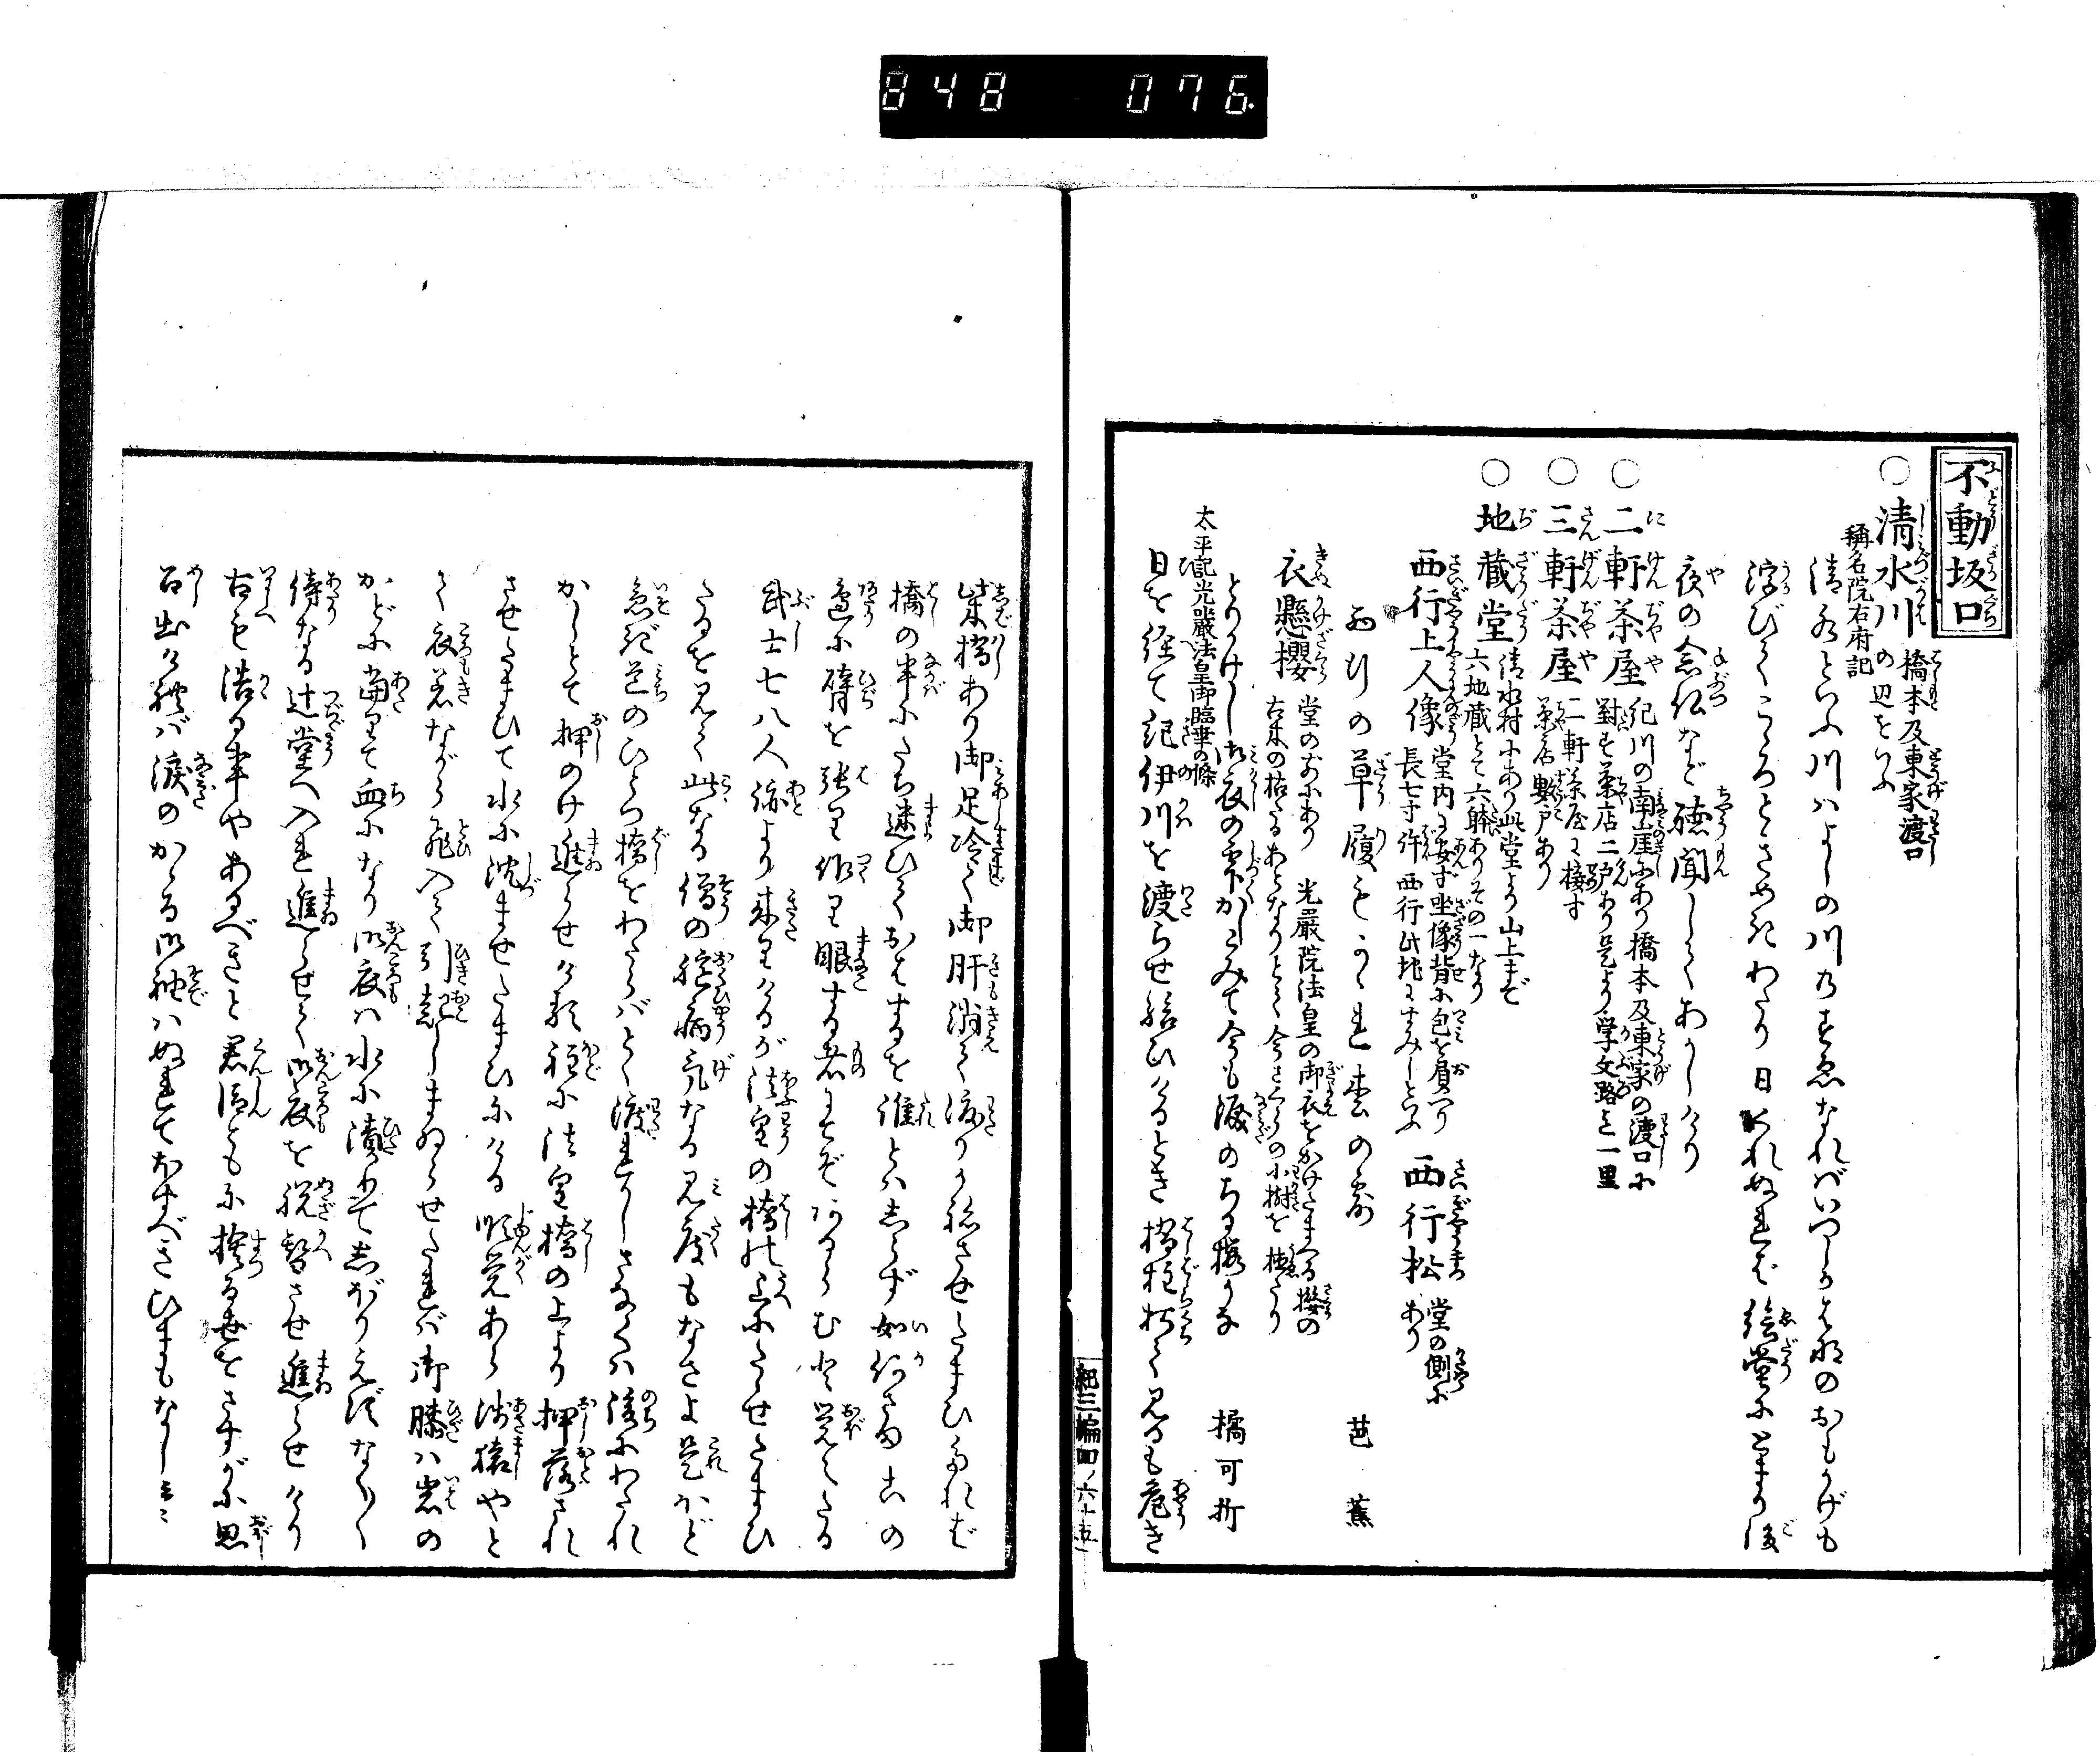 848 076
不動坂口
○清水川 橋本及東家渡口
の辺をいふ
稱名院右府記
清水といふ川ハよしの川乃すゑなれバいつしかそれのおもかげも
浮びてこゝろときめきわたり日くれぬれば 絵堂にとまり 後
夜の念仏など聴聞してあかしけり
○二軒茶屋 紀川の南崖にあり橋本及東家の渡口に
對す茶店二戸あり是より学文路迄一里
○三軒茶屋 二軒茶屋に接す
茶店數戸あり
○地蔵堂 清水村にあり此堂より山上まで
六地蔵とて六躰ありその一なり
西行上人像 堂内に安ず坐像背に包を負へり
長七寸許西行此地にすみしといふ
西行松 堂の側に
あり
の草履もかゝれ
芭蕉
衣懸櫻 堂のまへにあり 光嚴院法皇の御衣をかけたまへる櫻の
古木の枯たるあとなりとて今さくらの小樹を植たり
とりかけし御衣の雫かしこみて今も涙のちる櫻かな
橘可折
太平記光嚴法皇御臨幸の條
日を経て紀伊川を渡らせ給ひけるとき橋柱朽て見るも危き
紀三編四ノ六十五
柴橋あり御足冷て御肝消て渡りかねさせたまひたれば
橋の半にたち迷ひておはするを誰とハしらず如何さま この
邊に臂を張り作り眼する者にてぞあるらむと覚えたる
武士七八人跡より来りけるが法皇の橋の上にたゝせたまひ
たるを見て此なる僧の臆病気なる見度もなさよ是ほど
急ぎ道のひとつ橋をわたらバとく渡れかしさなくハ後にわたれ
かしとて押のけ進らせける程に法皇橋の上より押落され
させたまひて水に沈ませたまひにける順覚あら浅猿やと
て衣着ながら飛入て引起しまゐらせたれバ御膝ハ岩の
かどに当りて血になり御衣ハ水に漬りてしぼりえず なく〳〵
傍なる辻堂へ入れ進らせて御衣を脱替させ進らせけり
古も浩る事やあるべきと君臣ともに捨る世をさすがに思
召出ければ涙のかゝる御袖ハぬれてほすべきひまもなし云云